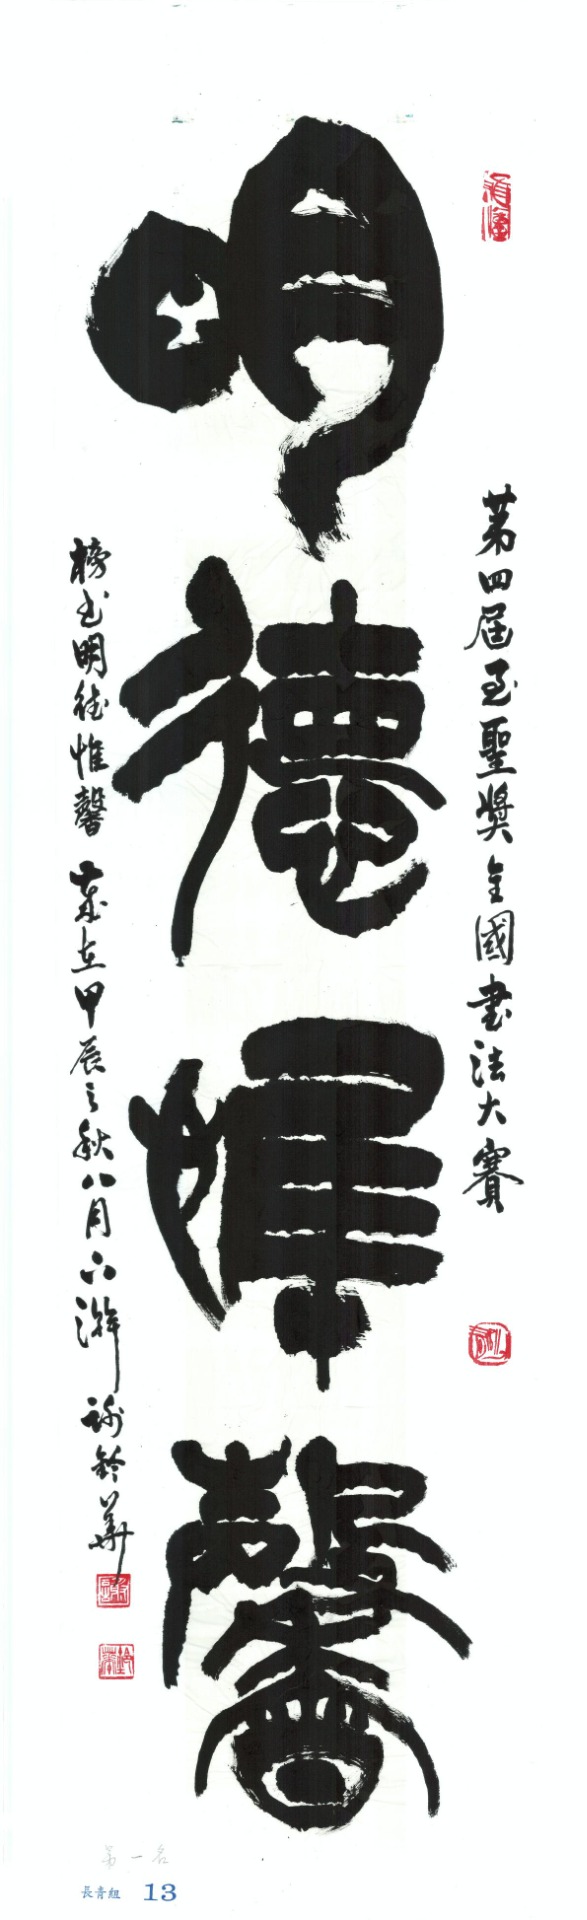 明德惟馨
第四屆至聖獎全國書法大賽
榜書明德惟馨 歲在甲辰之秋八月六
謝鈴華
第一名
長青組 13